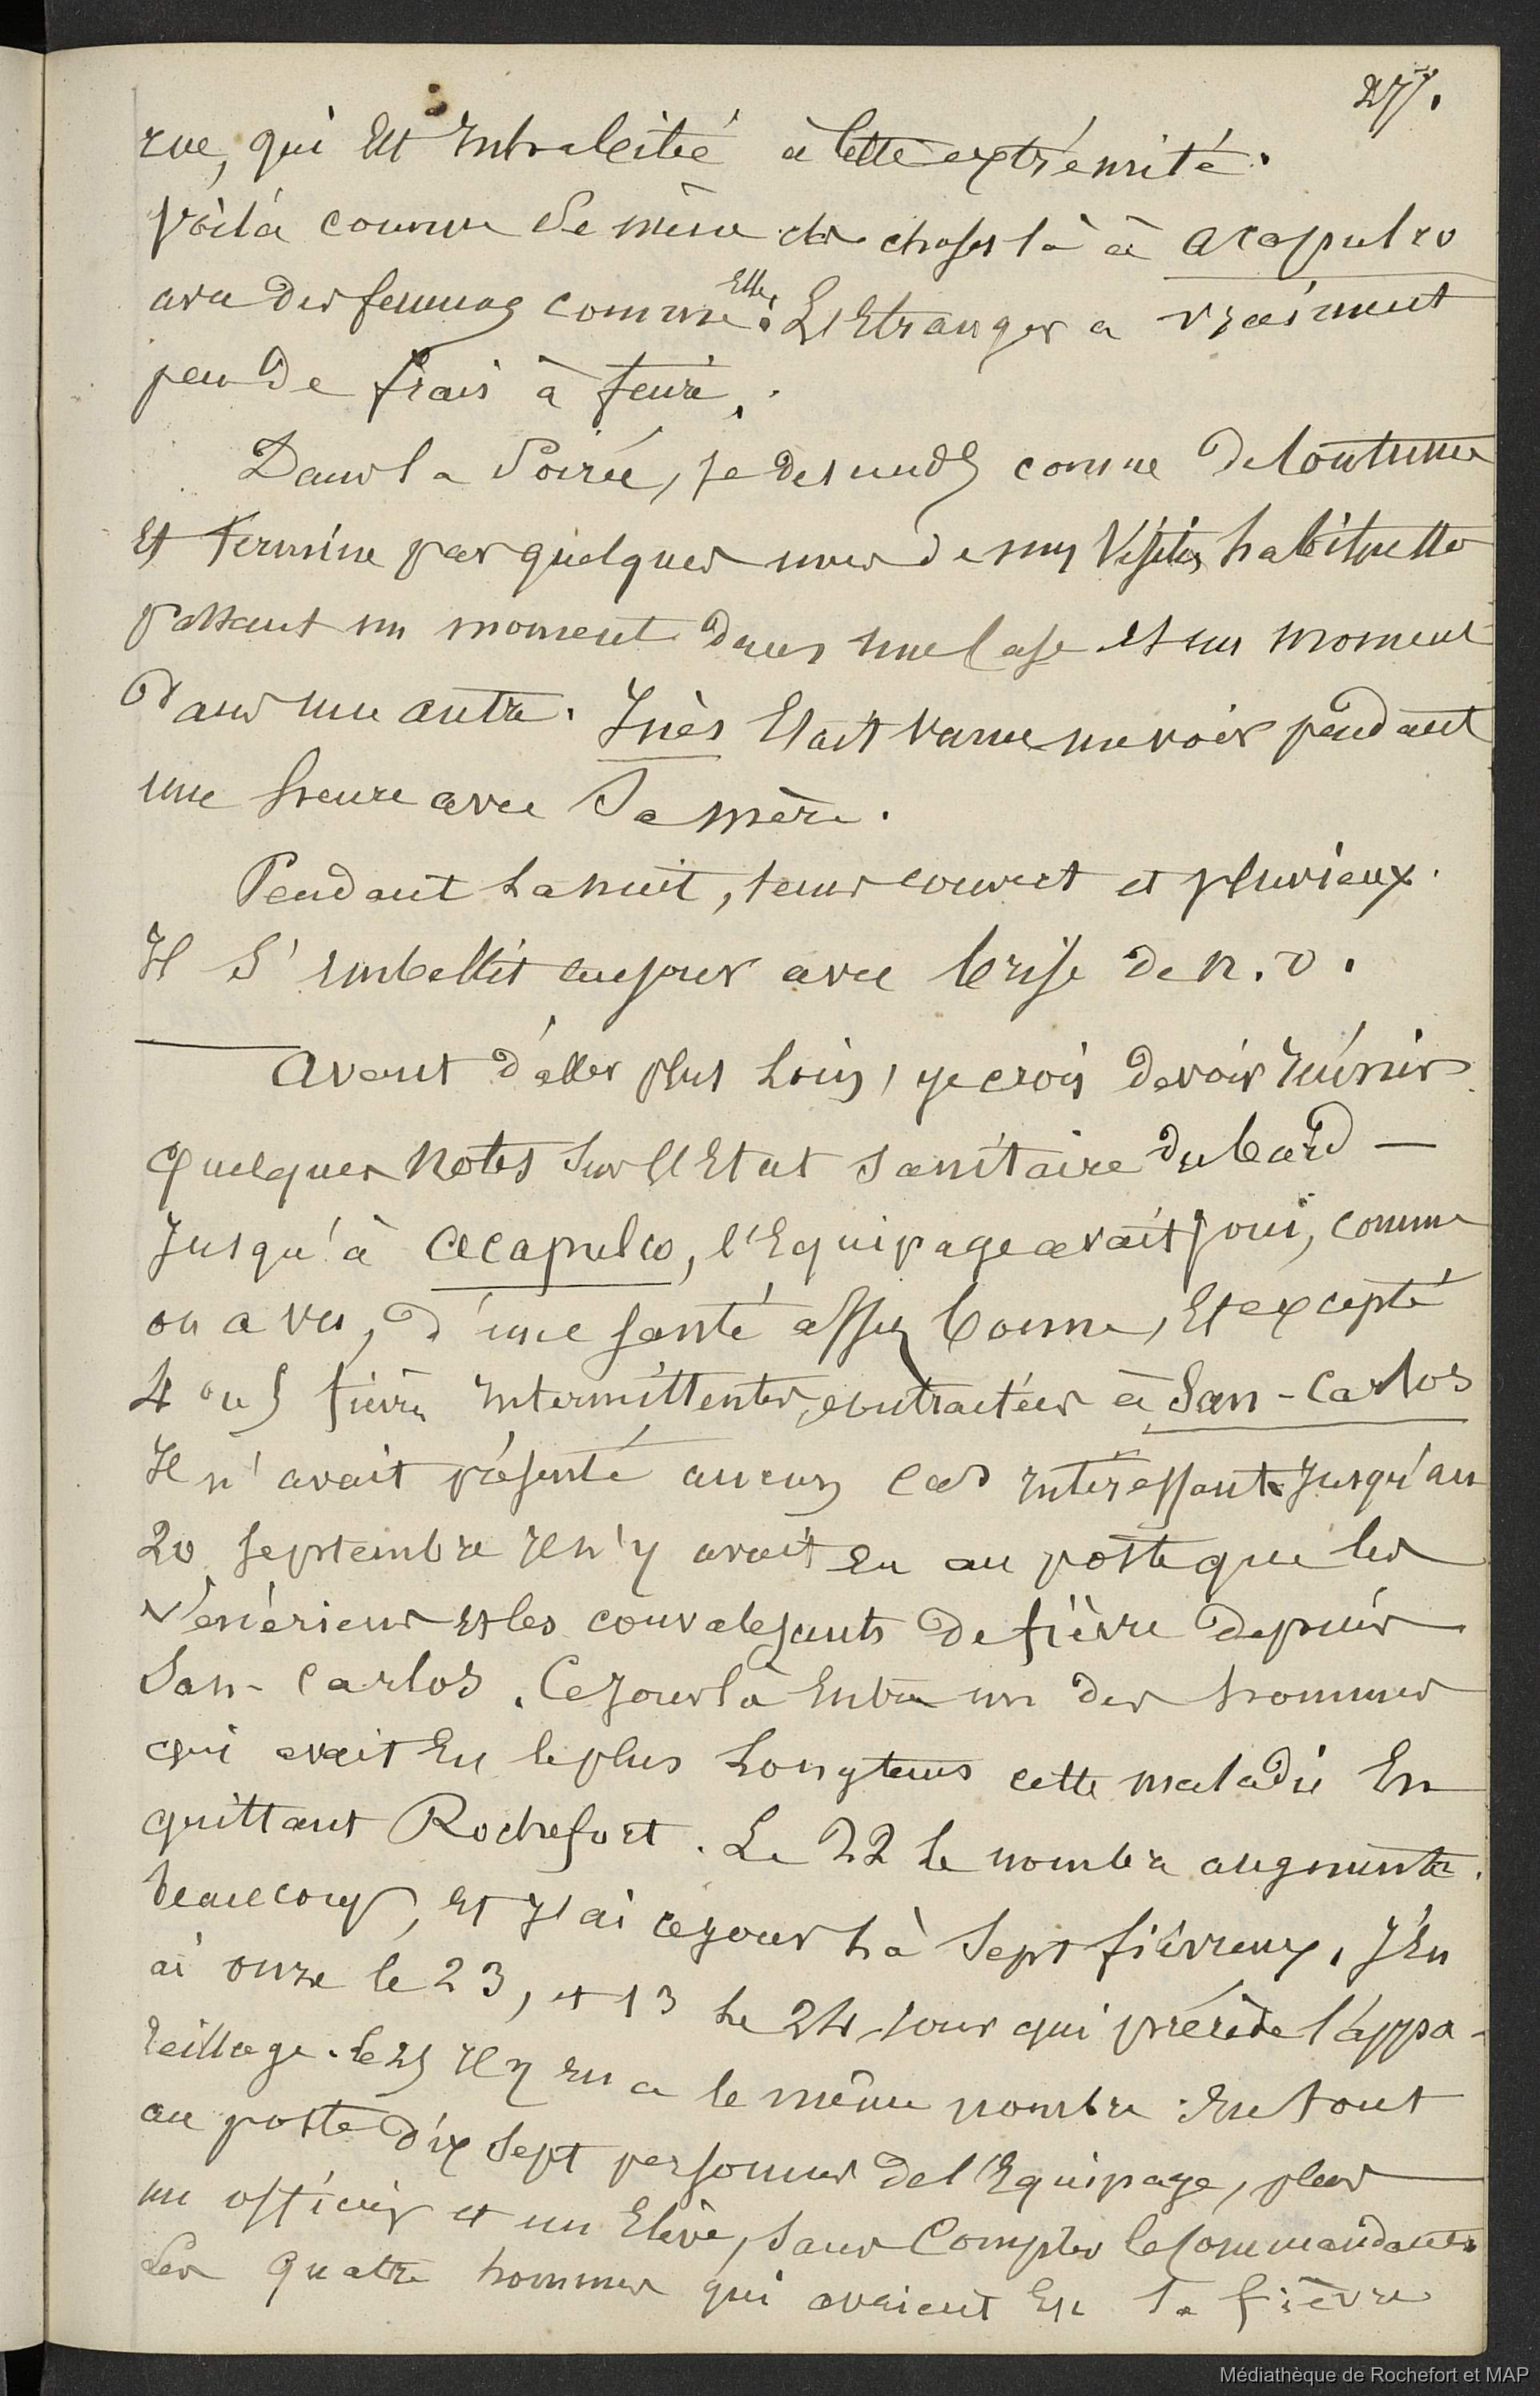 277.
rue, qui est inhabitée à cette extrémité.
Voilà comme se mène ces choses là à Acapulco
avec des femmes comme Elle. L'Etranger a vraiment
peu de frais à faire.
Dans la Soirée, je descends comme de Coutume
et termine par quelques unes de mes Visites habituelles
passant un moment dans une Case et un moment
dans une autre. Inès Etait venue me voir pendant
une heure avec Sa mère.
Pendant la nuit, tems couvert et pluvieux.
Il S'embellit au jour avec brise de N. O.
Avant d'aller plus loin, je crois devoir réunir
quelques notes sur l'Etat Sanitaire du bord —
Jusqu'à Acapulco, l'Equipage avait joui, comme
on a vu, d'une santé assez bonne, et excepté
4 ou 5 fièvres intermittentes, contractées à San-Carlos
Il n'avait présenté aucun cas intéressant. Jusqu'au
20 Septembre Il n'y avait eu au poste que les
Vénériens et les convalesçants de fièvre depuis
San-Carlos. Ce jour là Entra un des hommes
qui avait Eu le plus longtems cette maladie En
quittant Rochefort. Le 22 le nombre augmente
beaucoup, et J'ai ce jour là Sept fiévreux, J'En
ai onze le 23, et 13 le 24 jour qui précède l'appa-
reillage. le 25 Il y en a le même nombre. En tout
au poste dix Sept personnes de l'Equipage, plus
un officier et un Elève, Sans Compter le Commandant.
Les quatre hommes qui avaient Eu la fièvre
Médiathèque de Rochefort et MAP